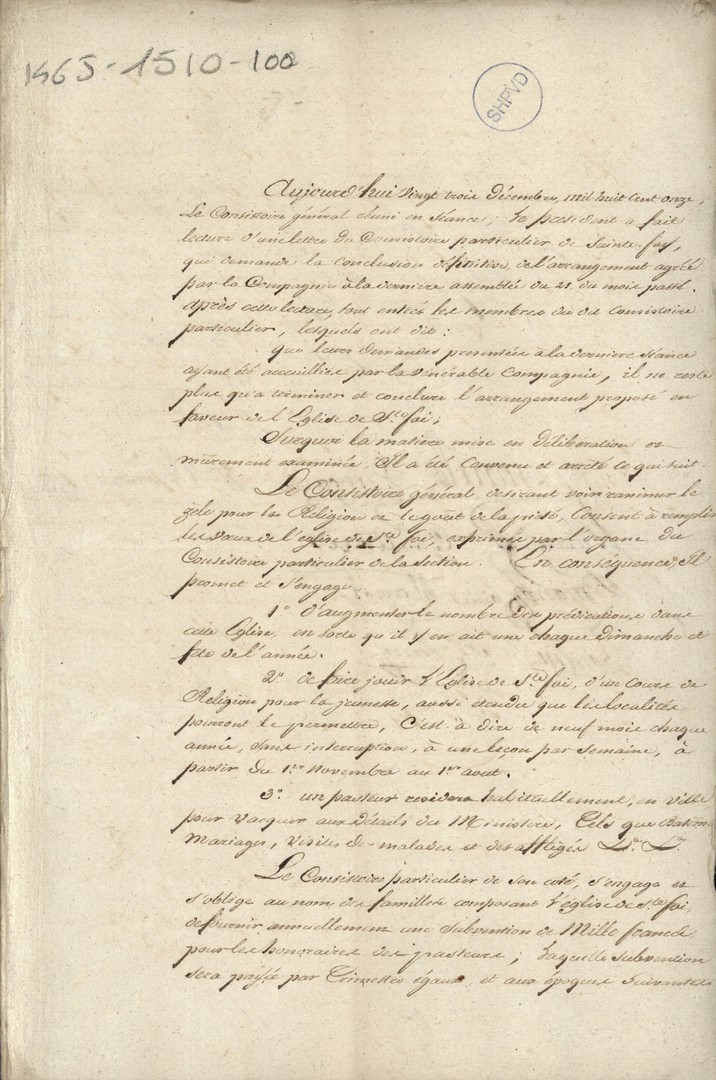 1465-1510-100
SHPVD
Aujourd'hui vingt trois décembre, mil huit cent onze,
Le Consistoire général réuni en séance; le président a fait
lecture d'une lettre du Consistoire particulier de Sainte foy,
qui demande la conclusion définitive de l'arrangement agréé
par la Compagnie à la dernière assemblée du 21 du mois passé.
après cette lecture, sont entrés les membres du dit consistoire
particulier, lesquels ont dit:
que leurs demandes presentées à la dernière séance
ayant été accueillies par la vénérable Compagnie, il ne reste
plus qu'a terminer et conclure l'arrangement proposé en
faveur de l'Eglise de Ste foi;
Surquoi la matiere mise en délibération et
mûrement examinée, Il a été convenu et arrêté ce qui suit.
Le Consistoire général, desirant voir ranimer le
zèle pour la Religion et le goût de la piété, Consent à remplir
les vœux de l'église de Ste foi, exprimés par l'organe du
Consistoire particulier de la section. En conséquence, Il
promet et s'engage
1o d'augmenter le nombre des prédications dans
cette Eglise, en sorte qu'il y en ait une chaque dimanche et
fête de l'année.
2o de faire jouir l'Eglise de Ste foi, d'un cours de
Religion pour la jeunesse, aussi étendu que les localités
pourront le permettre, C'est à dire de neuf mois chaque
année, sans interruption, à une leçon par semaine, à
partir du 1er Novembre au 1er août.
3o un pasteur residera habituellement, en ville
pour vacquer aux détails du Ministère, Tels que
Mariages, visites de malades et des affligés
Le Consistoire particulier de son coté, s'engage et
s'oblige au nom des familles composant l'église de Ste foi,
de fournir annuellement une subvention de Mille francs
pour les honoraires des pasteurs; laquelle subvention
sera payée par Trimestres égaux, et aux époques suivantes